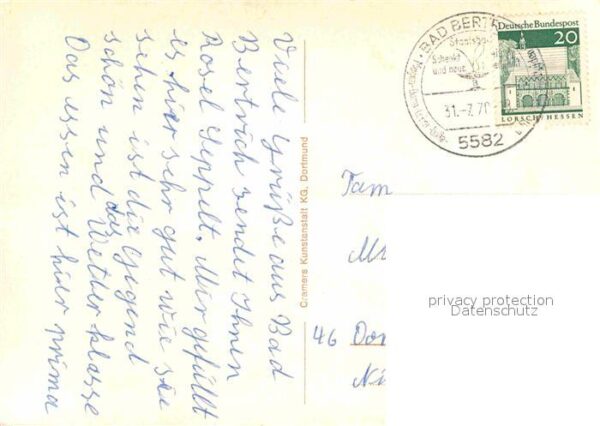 Viele Grüße aus Bad
Bertrich sendet Ihnen
Rosel Seppelt. Mir gefällt
es hier sehr gut wie sie
sehen ist die Gegend
schön und das Wetter klasse
Das essen ist hier prima
Cramers Kunstanstalt KG, Dortmund
BAD BERT
Staatsba
Schenkt
und neue
31.-7.70
5582
Deutsche Bundespost
20
LORSCH/HESSEN
Fam
46 Dor
privacy protection
Datenschutz